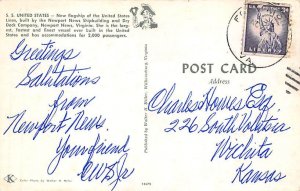 S. S. UNITED STATES — New flagship of the United States
Lines, built by the Newport News Shipbuilding and Dry
Dock Company, Newport News, Virginia. She is the larg-
est, fastest and finest vessel ever built in the United
States and has accommodations for 2,000 passengers.
Greetings
Salutations
from
Newport News.
Your friend
POST CARD
LIBERTY
Charles Howes Esq.
226 South Volutsia
Wichita
Kansas